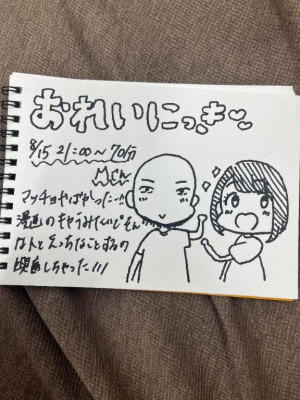 おれいにっき♡
8/15 21:00〜70分
Mさん
マッチョやばやったー!!
漫画のキャラみたいでそん
な人とえっちなことするの
興奮しちゃった!!!